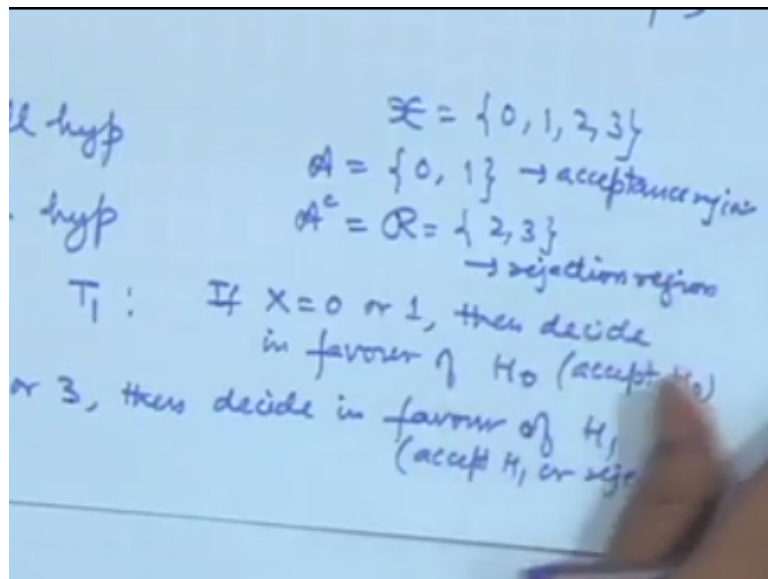 hyp
𝒳 = {0, 1, 2, 3}
A = {0, 1} → acceptance region
hyp
Aᶜ = R = {2, 3}
→ rejection region
T₁ : If X = 0 or 1, then decide
in favour of H₀ (accept H₀)
or 3, then decide in favour of H₁
(accept H₁ or reje